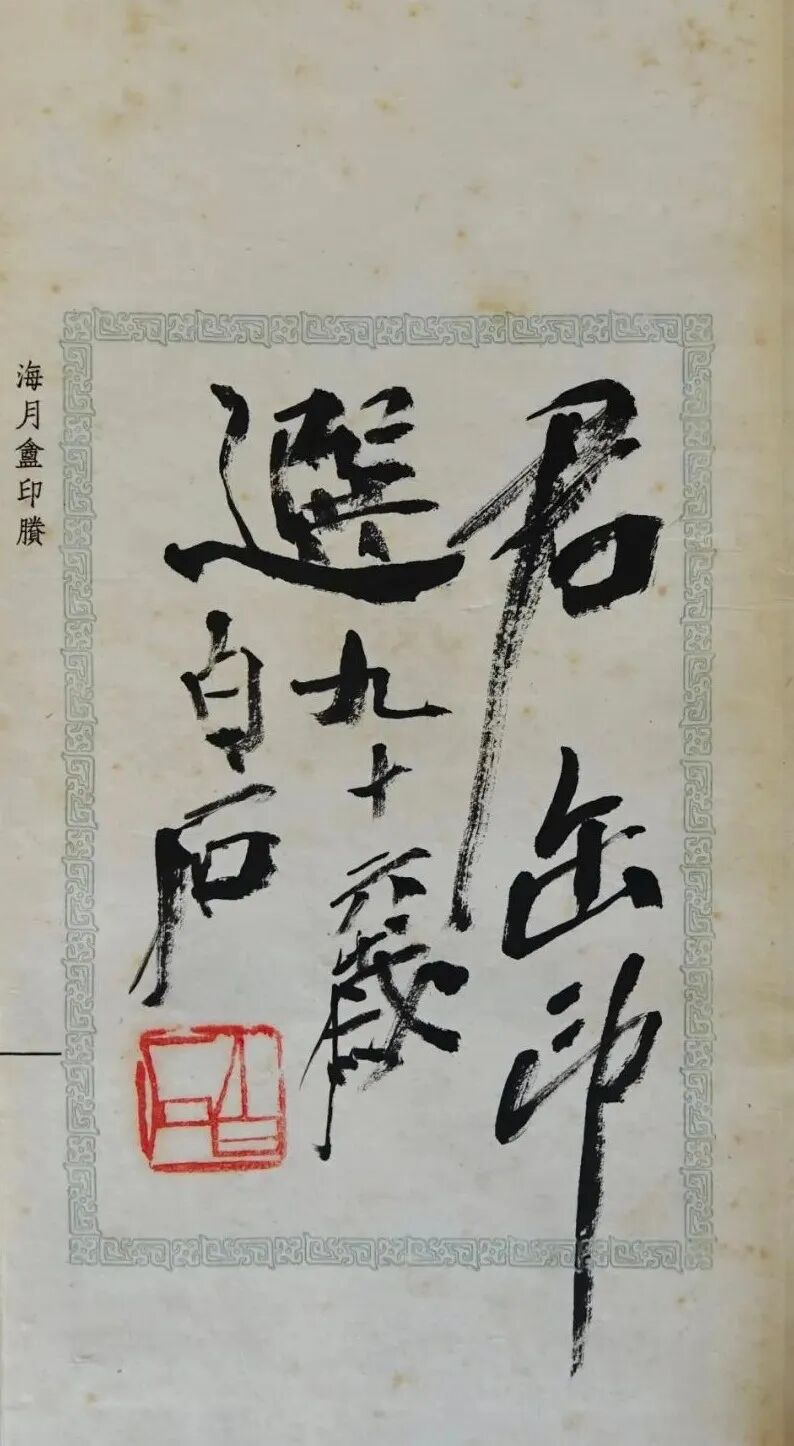 君缶印
選
九十六歲
白石
白石
海月盦印賸